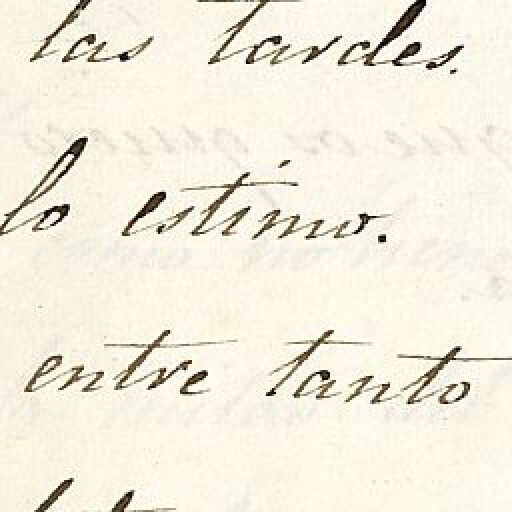 las tardes.
lo estimo.
entre tanto